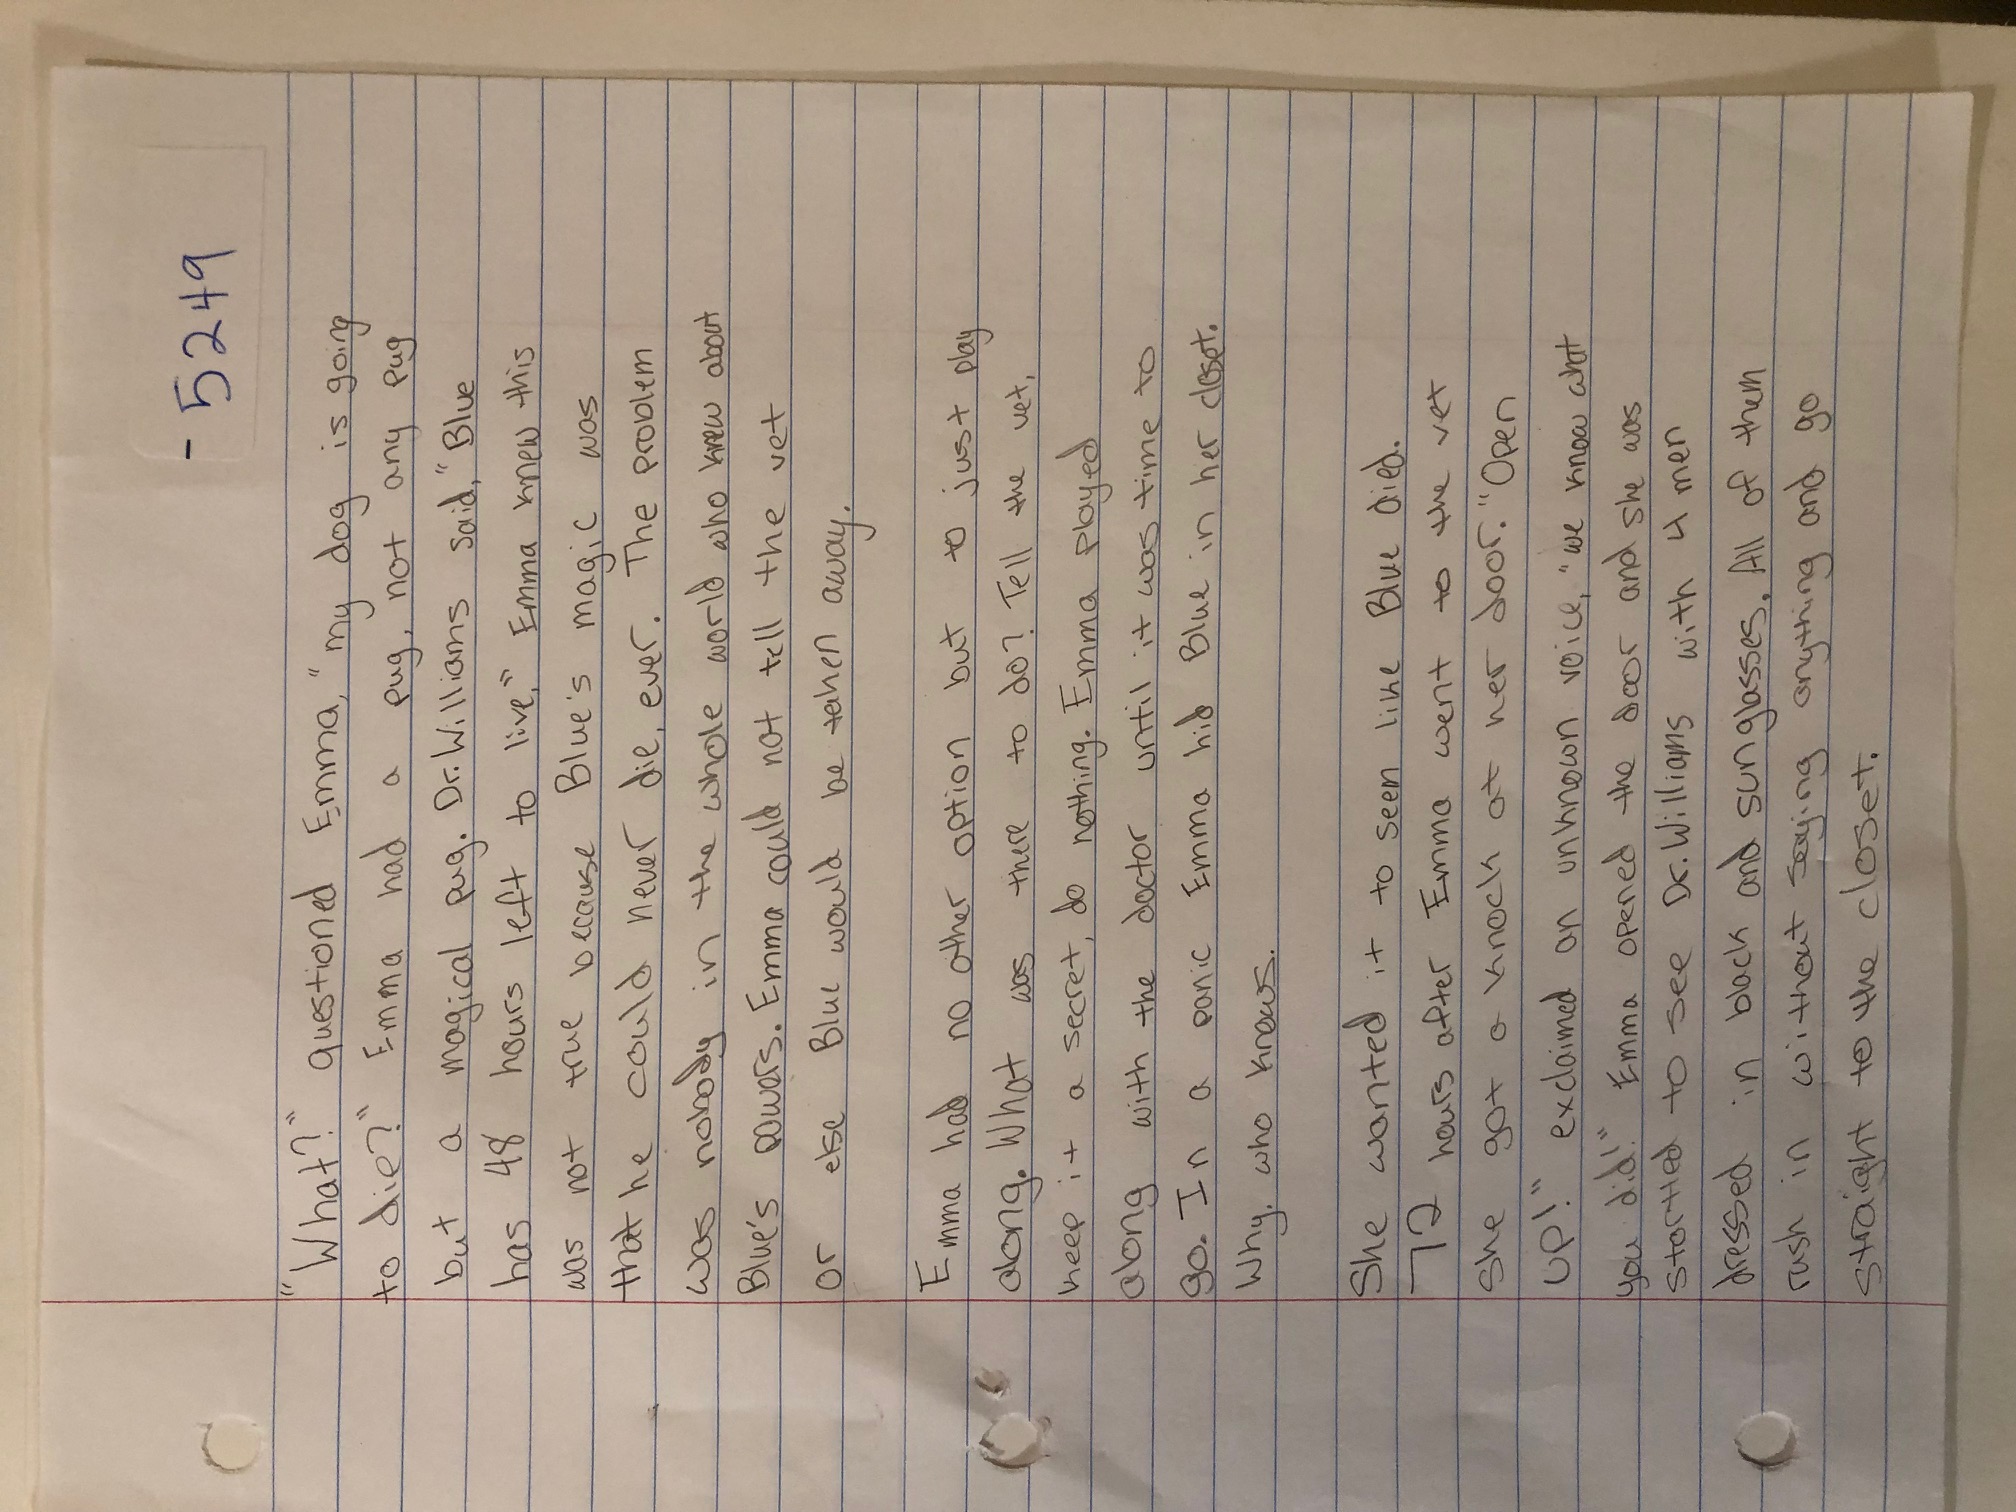 - 5249
"What?" questioned Emma, "my dog is going
to die?" Emma had a pug, not any pug
but a magical pug. Dr. Williams said, "Blue
has 48 hours left to live," Emma knew this
was not true because Blue's magic was
that he could never die, ever. The problem
was nobody in the whole world who knew about
Blue's powers. Emma could not tell the vet
or else Blue would be taken away.
Emma had no other option but to just play
along. What was there to do? Tell the vet,
keep it a secret, do nothing. Emma played
along with the doctor until it was time to
go. In a panic Emma hid Blue in her closet.
Why, who knows.
She wanted it to seen like Blue died.
72 hours after Emma went to the vet
she got a knock at her door. "Open
up!" exclaimed an unknown voice, "we know what
you did!" Emma opened the door and she was
startled to see Dr. Williams with 4 men
dressed in black and sunglasses. All of them
rush in without saying anything and go
straight to the closet.